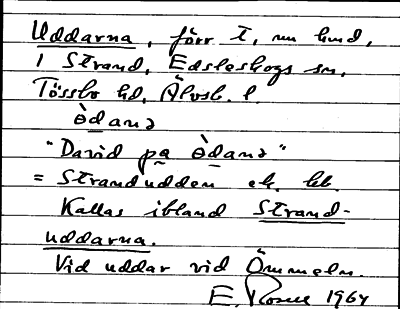 Uddarna, förr t, nu hmd,
1 Strand, Edsleskogs sn,
Tössbo hd, Älvsb. l.
òdanə
"David pa òdanə"
= Strandudden ek. kb.
Kallas ibland Strand-
uddarna.
Vid uddar vid Ömmeln.
E. Rosell 1964